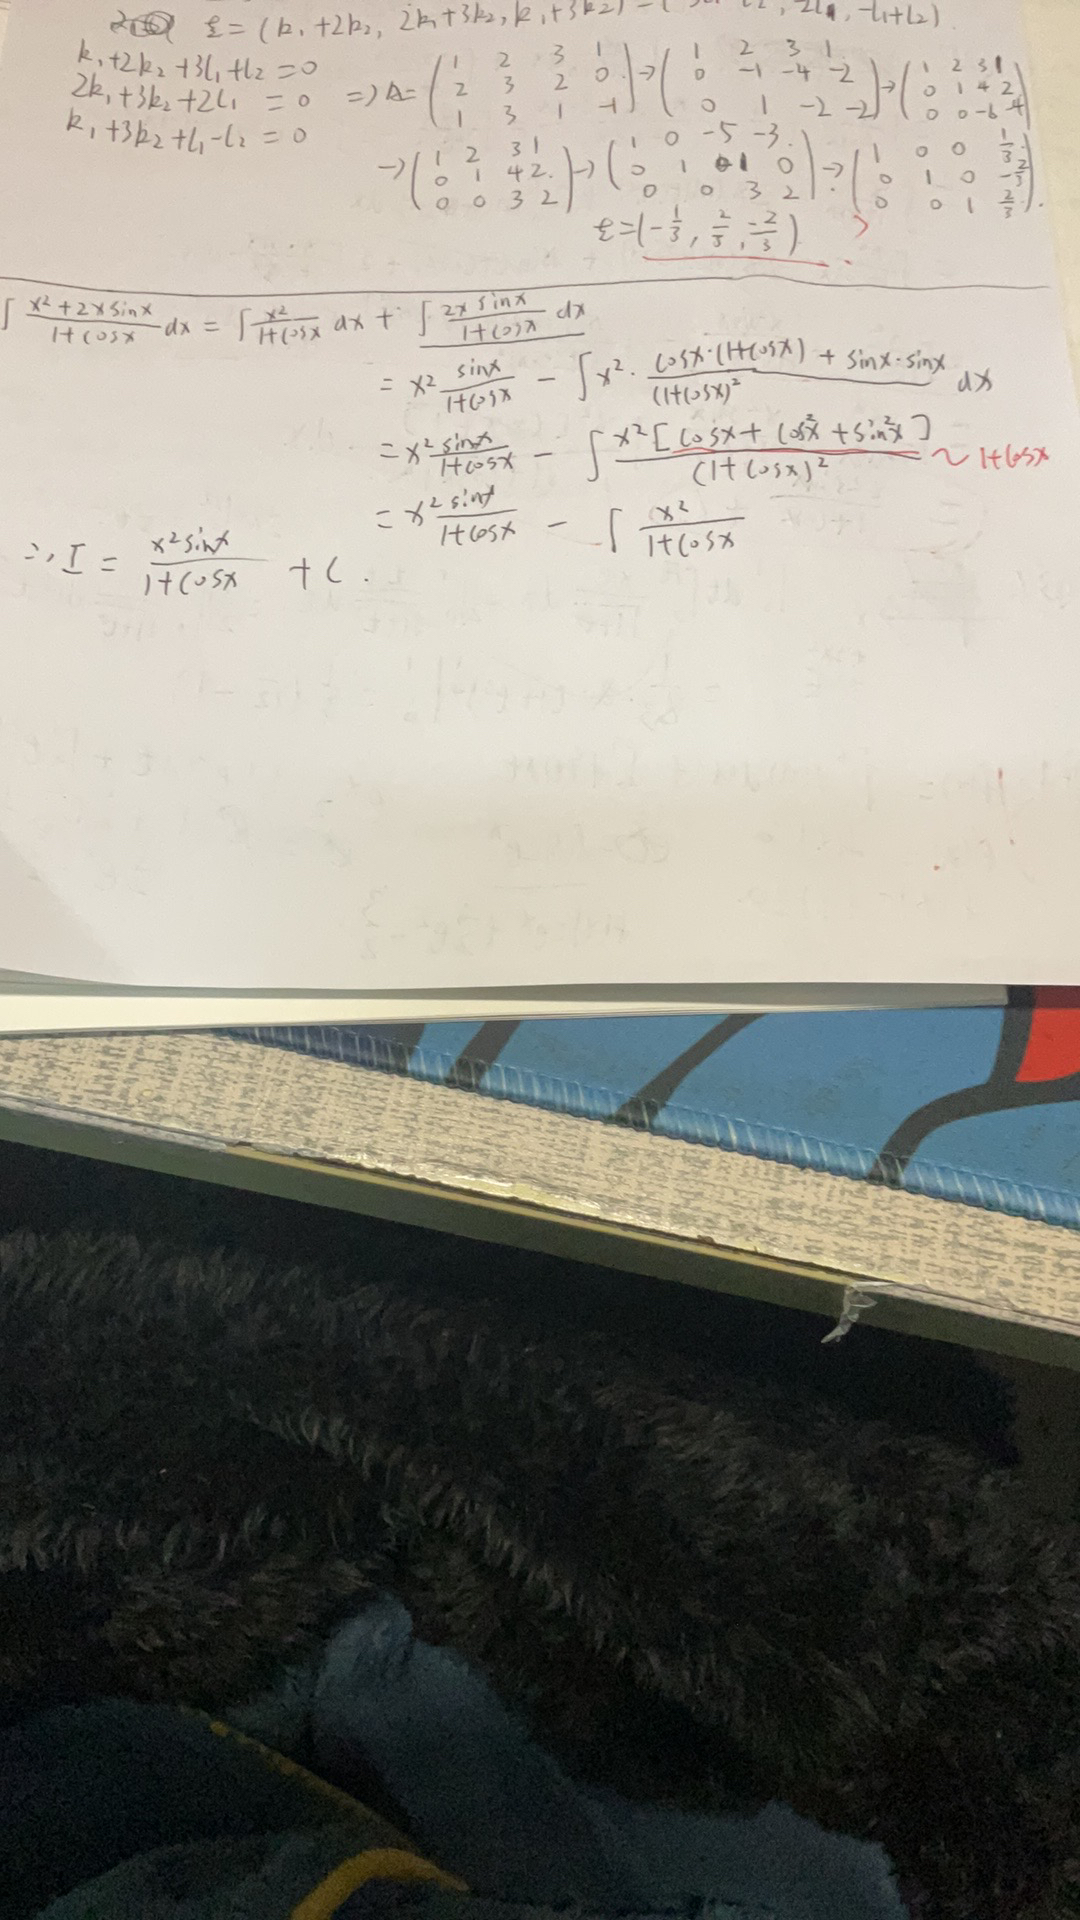 ξ = (k₁+2k₂, 2k₁+3k₂, k₁+3k₂) = ( , -2l₁, -l₁+l₂).
k₁+2k₂+3l₁+l₂=0
2k₁+3k₂+2l₁ =0 => A= (1 2 3 1; 2 3 2 0; 1 3 1 -1) → (1 2 3 1; 0 -1 -4 -2; 0 1 -2 -2) → (1 2 3 1; 0 1 4 2; 0 0 -6 -4)
k₁+3k₂+l₁-l₂=0
→ (1 2 3 1; 0 1 4 2; 0 0 3 2) → (1 0 -5 -3; 0 1 1 0; 0 0 3 2) → (1 0 0 1/3; 0 1 0 -2/3; 0 0 1 2/3).
ξ=(-1/3, 2/3, -2/3).
∫ (x²+2x sinx)/(1+cosx) dx = ∫ x²/(1+cosx) dx + ∫ (2x sinx)/(1+cosx) dx
= x² sinx/(1+cosx) - ∫ x² · (cosx·(1+cosx) + sinx·sinx)/(1+cosx)² dx
= x² sinx/(1+cosx) - ∫ x²[cosx + cos²x + sin²x]/(1+cosx)² ~ 1+cosx
= x² sinx/(1+cosx) - ∫ x²/(1+cosx)
∴ I = x² sinx/(1+cosx) + C.